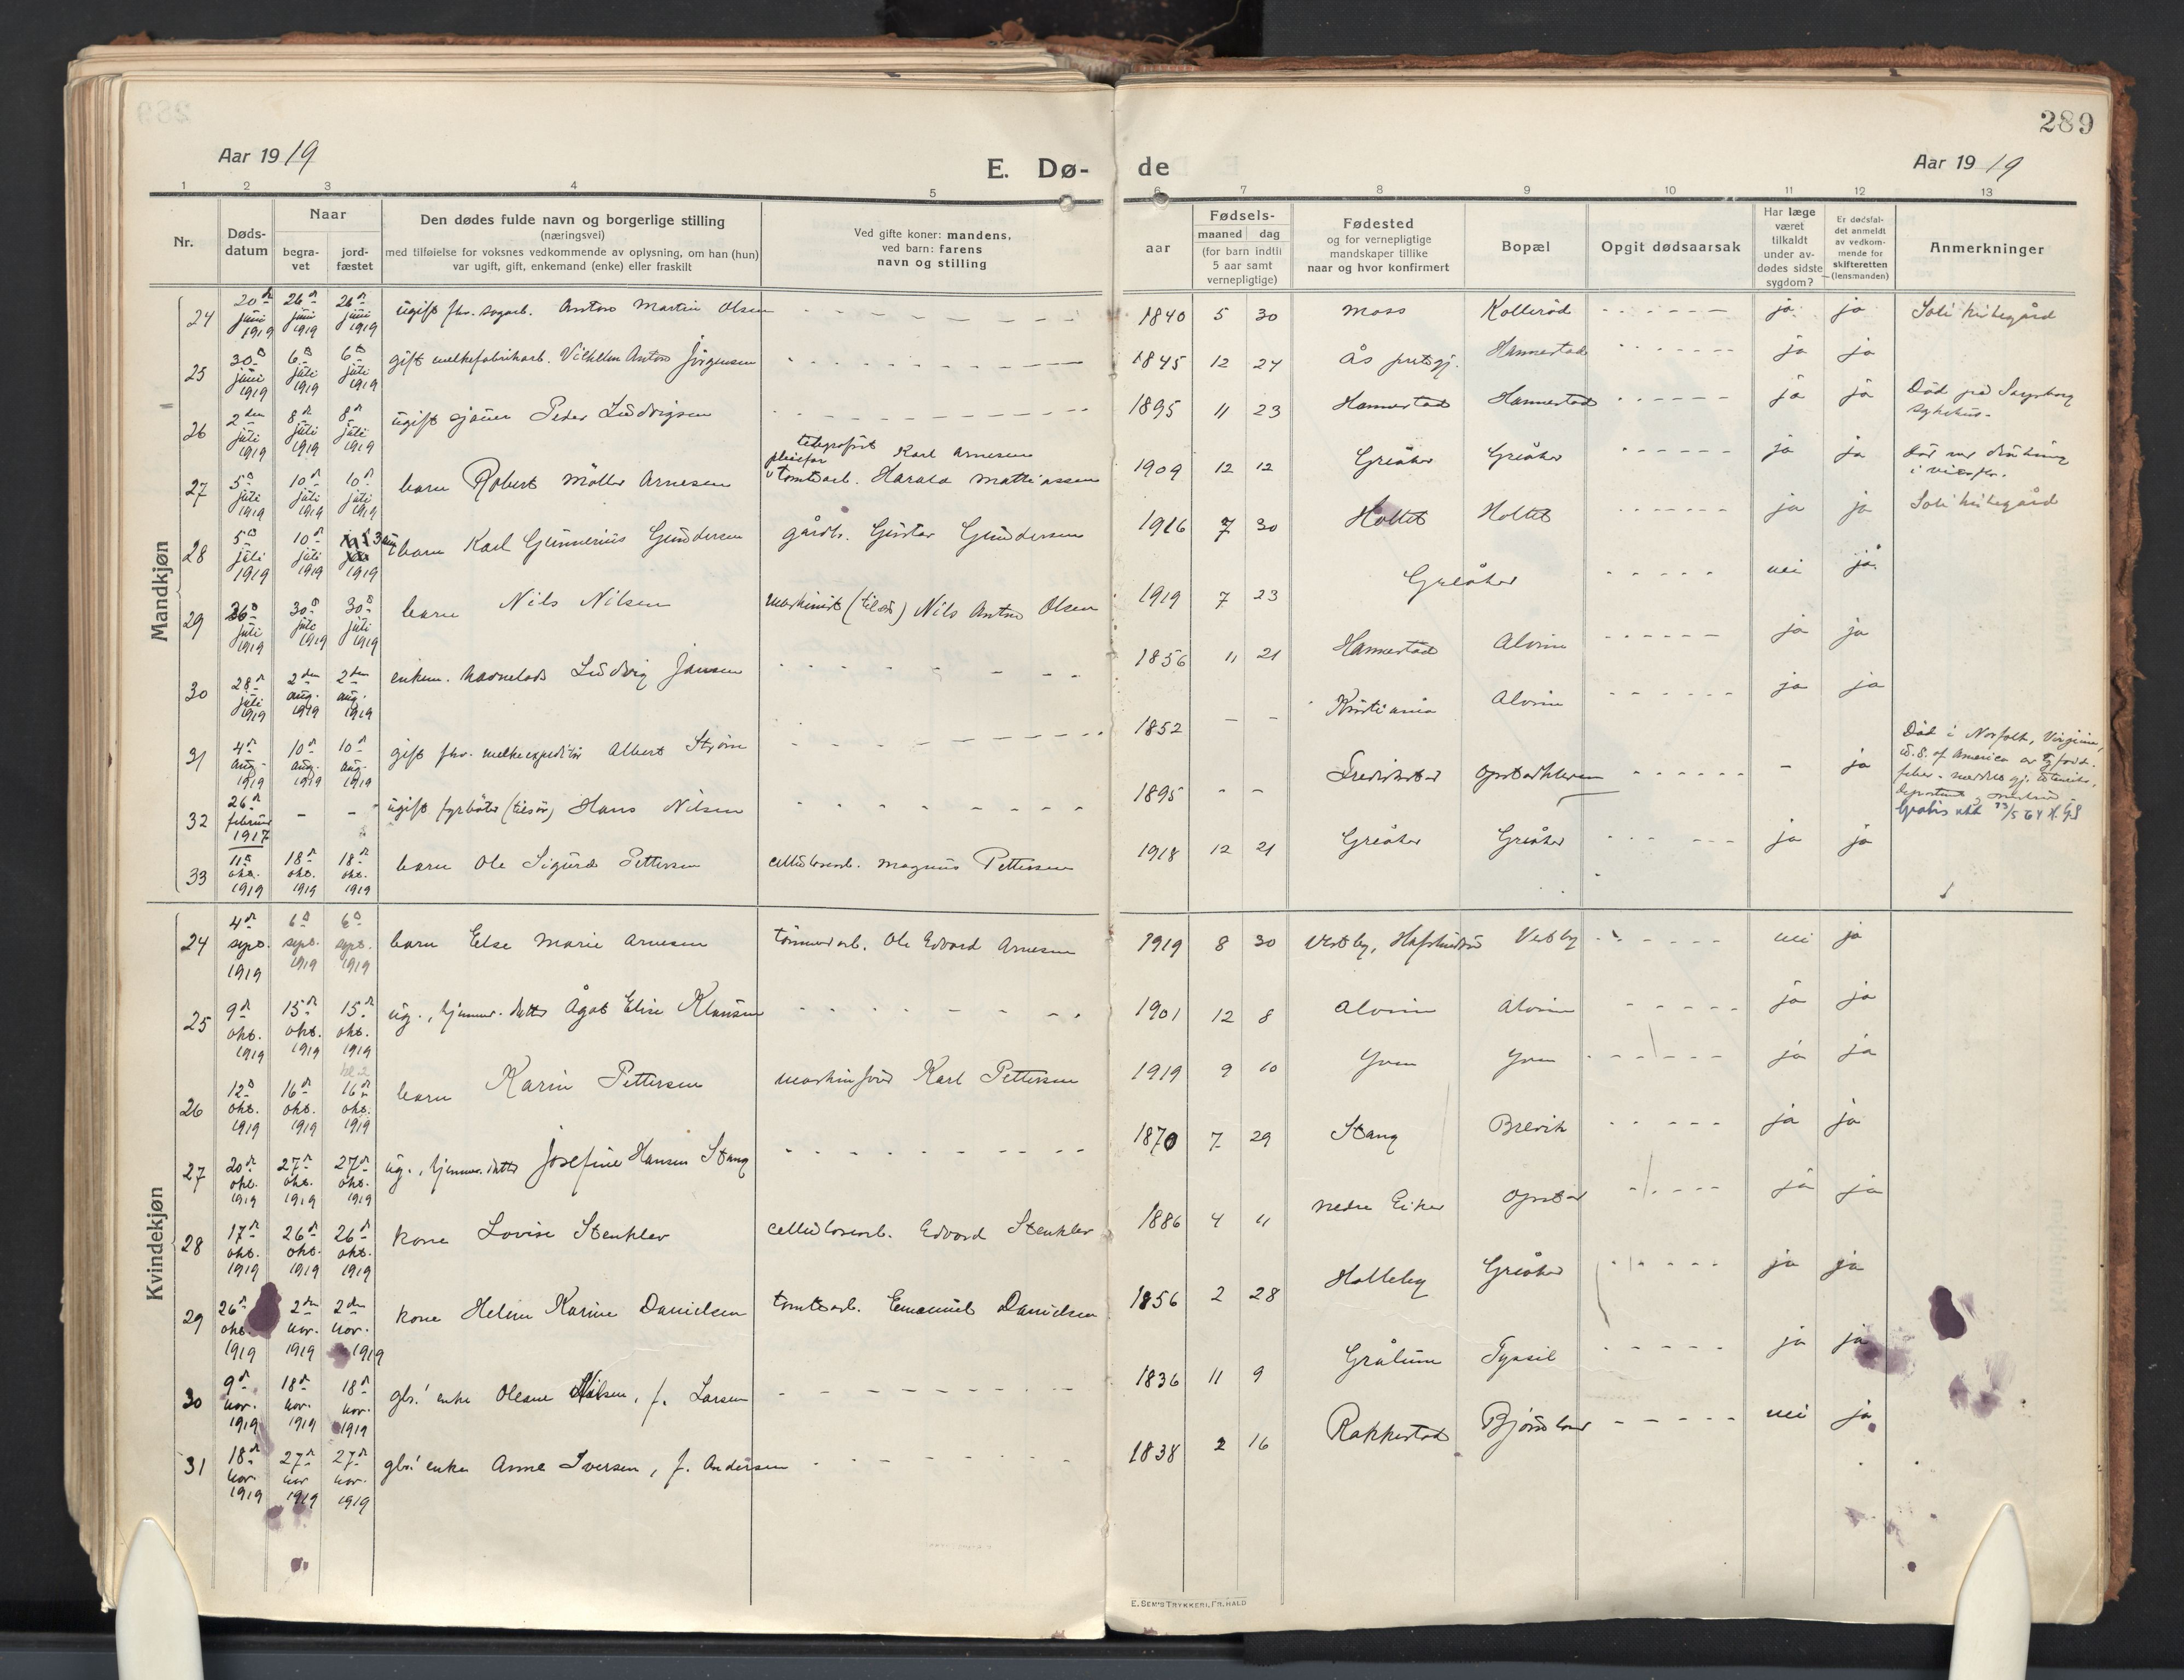 289
Aar 1919
E. Dø-
de
Aar 1919
1 2 3 4 5 6 7 8 9 10 11 12 13
Nr.
Døds-
datum
Naar
begra-
vet
jord-
fæstet
Den dødes fulde navn og borgerlige stilling
(næringsvei)
med tilføielse for voksnes vedkommende av oplysning, om han (hun)
var ugift, gift, enkemand (enke) eller fraskilt
Ved gifte koner: mandens,
ved barn: farens
navn og stilling
Fødsels-
aar
maaned dag
(for barn indtil
5 aar samt
vernepligtige)
Fødested
og for vernepligtige
mandskaper tillike
naar og hvor konfirmert
Bopæl
Opgit dødsaarsak
Har læge
været
tilkaldt
under av-
dødes sidste
sygdom?
Er dødsfal-
det anmeldt
av vedkom-
mende for
skifteretten
(lensmanden)
Anmerkninger
Mandkjøn
24 20de juni 1919 26de juni 1919 26de juni 1919 ugift fhv. sagarb. Anton Martin Olsen 1840 5 30 Moss Kollerød ja ja Soli kirkegård
25 30te juni 1919 6te juli 1919 6te juli 1919 gift melkefabrikarb. Vilhelm Anton Jörgensen 1845 12 24 Ås prstgj. Hannestad ja ja
26 2den juli 1919 8de juli 1919 8de juli 1919 ugift sjauer Peder Ludvigsen 1895 11 23 Hannestad Hannestad ja ja Død på Sarpsborg
sykehus.
27 5te juli 1919 10de juli 1919 10de juli 1919 barn Robert Möller Arnesen telegrafist Karl Arnesen
pleiefar
tomtearb. Harald Mathiassen 1909 12 12 Greåker Greåker ja ja
28 5te juli 1919 10de juli 1919 1919 barn Karl Gunnerius Gundersen gårdb. Gustav Gundersen 1916 7 30 Holtet Holtet ja ja Soli kirkegård
29 26de juli 1919 30te juli 1919 30te juli 1919 barn Nils Nilsen maskinist (tilsös) Nils Anton Olsen 1919 7 23 Greåker nei ja
30 28de juli 1919 2den aug. 1919 2den aug. 1919 enkem. havnelods Ludvig Jansen 1856 11 21 Hannestad Alvim ja ja
31 4de aug. 1919 10de aug. 1919 10de aug. 1919 gift fhv. melkeexpeditör Albert Ström 1852 - - Kristiania Alvim ja ja
32 26de februar 1917 - - ugift fyrböter (tilsös) Hans Nilsen 1895 - - Fredrikstad Opstad - ja Död i Norfolk, Virginia,
U.S. of America
Gratis att 13/5 64
33 11te okt. 1919 18de okt. 1919 18de okt. 1919 barn Ole Sigurd Pettersen cellulosearb. Magnus Pettersen 1918 12 21 Greåker Greåker ja ja
Kvindekjøn
24 4de sept. 1919 6te sept. 1919 6te sept. 1919 barn Else Marie Arnesen tömmerarb. Ole Edvard Arnesen 1919 8 30 Vestby, Hafslundsö Vestby nei ja
25 9de okt. 1919 15de okt. 1919 15de okt. 1919 ug., hjemmev. datter Ågot Elise Klausen 1901 12 8 Alvim Alvim ja ja
26 12te okt. 1919 16de okt. 1919 16de okt. 1919 barn Karin Pettersen maskinförer Karl Pettersen 1919 9 10 Yven Yven ja ja
27 20de okt. 1919 27de okt. 1919 27de okt. 1919 ug., hjemmev. datter Josefine Hansen Stang 1870 7 29 Stang Brevik ja ja
28 17de okt. 1919 26de okt. 1919 26de okt. 1919 kone Lovise Stenklev cellulosearb. Edvard Stenklev 1886 4 11 Nedre Eiker Opstad ja ja
29 26de okt. 1919 2den nov. 1919 2den nov. 1919 kone Heline Karine Danielsen tomtearb. Emanuel Danielsen 1856 2 28 Holleby Greåker ja ja
30 9de nov. 1919 18de nov. 1919 18de nov. 1919 gbr.' enke Oleane Nilsen, f. Larsen 1836 11 9 Grålum ja ja
31 18de nov. 1919 27de nov 1919 27de nov. 1919 gbr.' enke Anne Iversen, f. Andersen 1838 2 16 Rakkestad nei ja
E. SEM'S TRYKKERI, FR.HALD